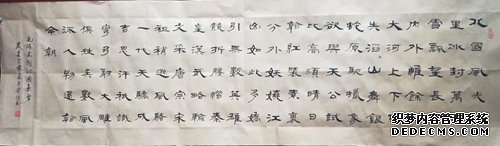 北國風光千
里冰封萬里
雪飄望長城
内外惟餘莽莽
大河上下頓
失滔滔山舞銀
蛇原馳蠟象
欲與天公試
比高須晴日
看紅裝素裹
分外妖嬈江山
如此多嬌
引無數英雄
競折腰惜秦
皇漢武略輸
文采唐宗宋
祖稍遜風騷
一代天驕成
吉思汗只識
彎弓射大雕
俱往矣數風
流人物還看
今朝
毛澤東詞沁園春雪